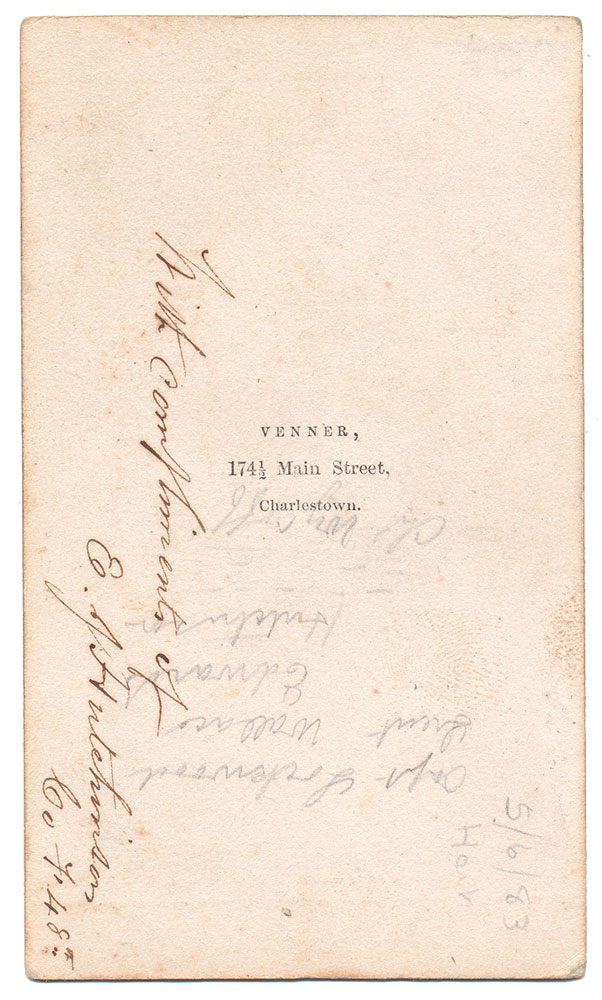 With Compliments of
E. J. Hutchinson
Co F. 48th
VENNER,
174½ Main Street,
Charlestown.
Capt Lockwood
Lieut Wallace
Edwards
Hutchinson
5/6/83